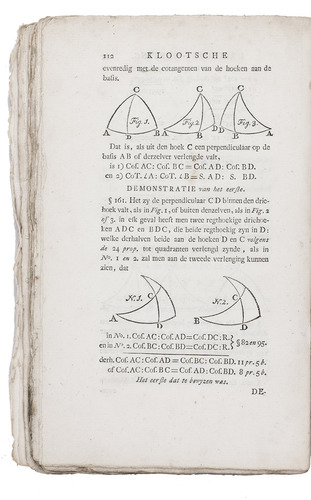 112 KLOOTSCHE
evenredig met de cotangemen van de hoeken aan de
basis.
C C C
Fig. 1. Fig. 2 Fig. 3.
A D B A B D D A B
Dat is, als uit den hoek C een perpendiculaar op de
basis AB of derzelver verlengde valt,
is 1) Cof. AC: Cof. BC = Cof. AD: Cof. BD.
en 2) CoT. ∠A: CoT. ∠B = S. AD: S. BD.
DEMONSTRATIE van het eerste.
§ 161. Het zy de perpendiculaar CD binnen den drie-
hoek valt, als in Fig. 1, of buiten denzelven, als in Fig. 2
of 3. in elk geval heeft men twee regthoekige driehoe-
ken ADC en BDC, die beide regthoekig zyn in D;
welke derhalven beide aan de hoeken D en C volgens
de 24 prop. tot quadranten verlengd zynde, als in
No. 1 en 2. zal men aan de tweede verlenging kunnen
zien, dat
N. 1. C N. 2. C
A D B D
in No. 1. Cof. AC: Cof. AD = Cof. DC: R. } § 82 en 95.
en in No. 2. Cof. BC: Cof. BD = Cof. DC: R.
derh. Cof. AC: Cof. AD = Cof. BC: Cof. BD. 11 pr. 5 b.
of Cof. AC: Cof. BC = Cof. AD: Cof. BD. 8 pr. 5 b.
Het eerste dat te bewyzen was.
DE-